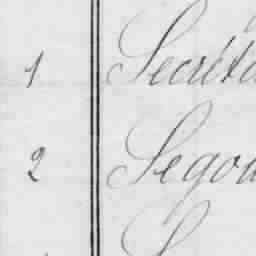 1 Secréta
2 Segou